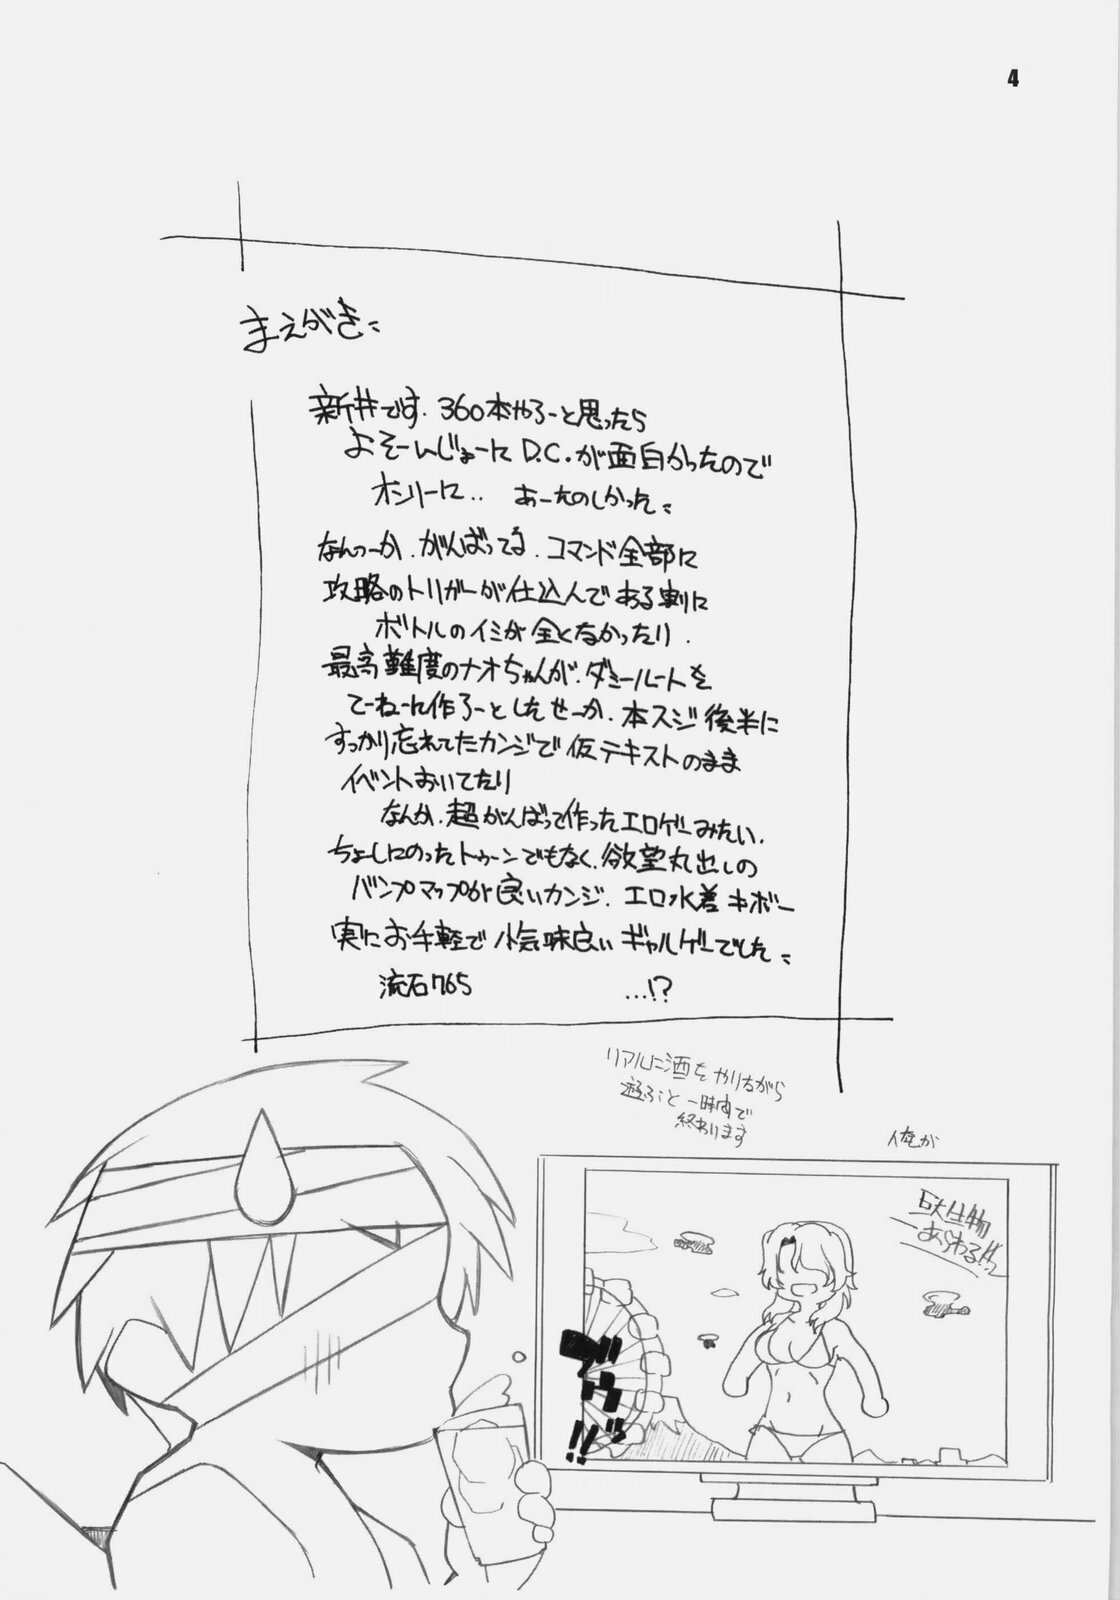 4
まえがき:
新井です. 360本やろーと思ったら
よそーいじょーに D.C.が面白かったので
オンリーに‥ あーたのしかった:
なんつーか.がんばってる.コマンド全部に
攻略のトリガーが仕込んである割に
ボトルのイミが全くなかったり.
最高難度のナオちゃんが.ダミールートを
てーねーに作ろーとしたせーか.本スジ後半に
すっかり忘れてたカンジで仮テキストのまま
イベントおいてたり
なんか.超がんばって作ったエロゲーみたい.
ちょーしにのったトゥーンでもなく.欲望丸出しの
バンプマップが良いカンジ.エロ水着キボー
実にお手軽で小気味良いギャルゲーでした:
流石765 …!?
リアルに酒をやりながら
遊ぶと一時間で
終わります
俺が
巨大生物
あらわる!!